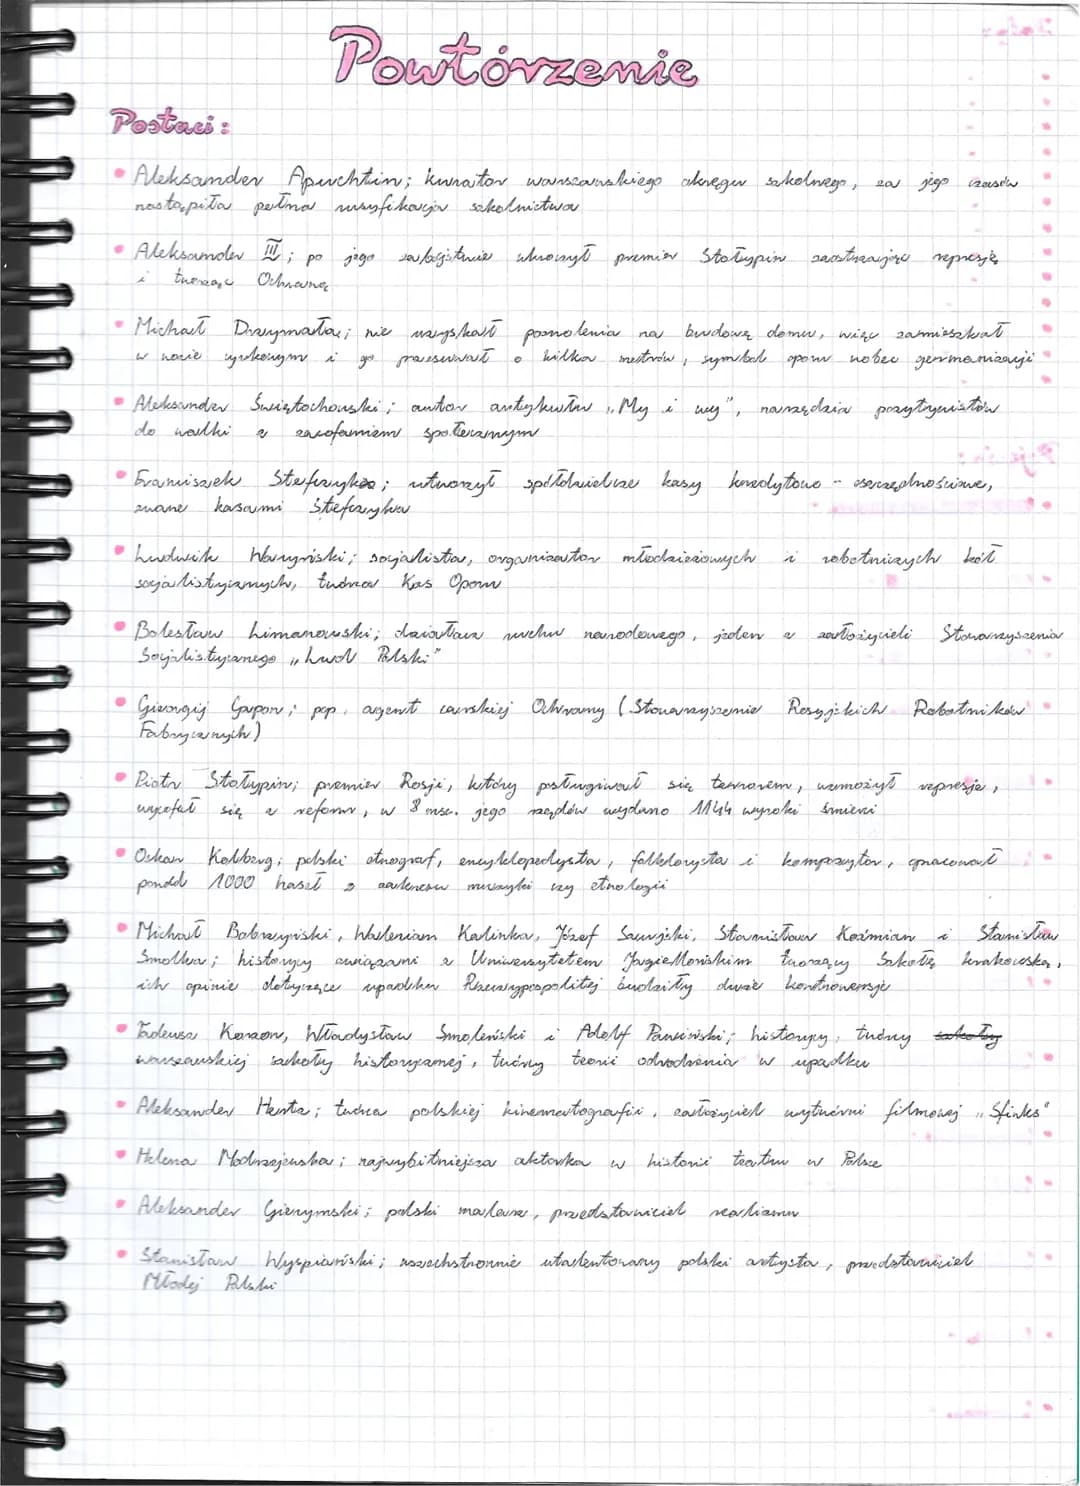 Powtórzenie
Postaci:
• Aleksander Apuchtin; kurator warszawskiego okręgu szkolnego, za jego czasów
nastąpiła pełna rusyfikacja szkolnictwa
• Aleksander III; po jego zabójstwie wkroczył premier Stołypin zaostrzając represję
i tworząc Ochranę
• Michał Drzymała; nie uzyskał pozwolenia na budowę domu, więc zamieszkał
w wozie cyrkowym i go przesuwał o kilka metrów, symbol oporu wobec germanizacji
• Aleksander Świętochowski; autor artykułu „My i wy", narzędzia pozytywistów
do walki z zacofaniem społecznym
• Franciszek Stefczyk; utworzył spółdzielcze kasy kredytowo - oszczędnościowe,
zwane kasami Stefczyka
• Ludwik Waryński; socjalista, organizator młodzieżowych i robotniczych kół
socjalistycznych, twórca Kas Oporu
• Bolesław Limanowski; działacz ruchu narodowego, jeden z założycieli Stowarzyszenia
Socjalistycznego „Lud Polski"
• Gieorgij Gapon; pop, agent carskiej Ochrany (Stowarzyszenie Rosyjskich Robotników
Fabrycznych)
• Piotr Stołypin; premier Rosji, który posługiwał się terrorem, wzmożył represje,
wycofał się z reform, w 8 msc. jego rządów wydano 1144 wyroki śmierci
• Oskar Kolberg; polski etnograf, encyklopedysta, folklorysta i kompozytor, opracował
ponad 1000 haseł z zakresu muzyki czy etnologii
• Michał Bobrzyński, Walerian Kalinka, Józef Szujski, Stanisław Koźmian i Stanisław
Smolka; historycy związani z Uniwersytetem Jagiellońskim tworzący Szkołę krakowską,
ich opinie dotyczące upadku Rzeczypospolitej budziły duże kontrowersje
• Tadeusz Korzon, Władysław Smoleński i Adolf Pawiński; historycy, twórcy szkoły
warszawskiej szkoły historycznej, twórcy teorii odrodzenia w upadku
• Aleksander Hertz; twórca polskiej kinematografii, założyciel wytwórni filmowej „Sfinks"
• Helena Modrzejewska; najwybitniejsza aktorka w historii teatru w Polsce
• Aleksander Gierymski; polski malarz, przedstawiciel realizmu
• Stanisław Wyspiański; wszechstronnie utalentowany polski artysta, przedstawiciel
Młodej Polski